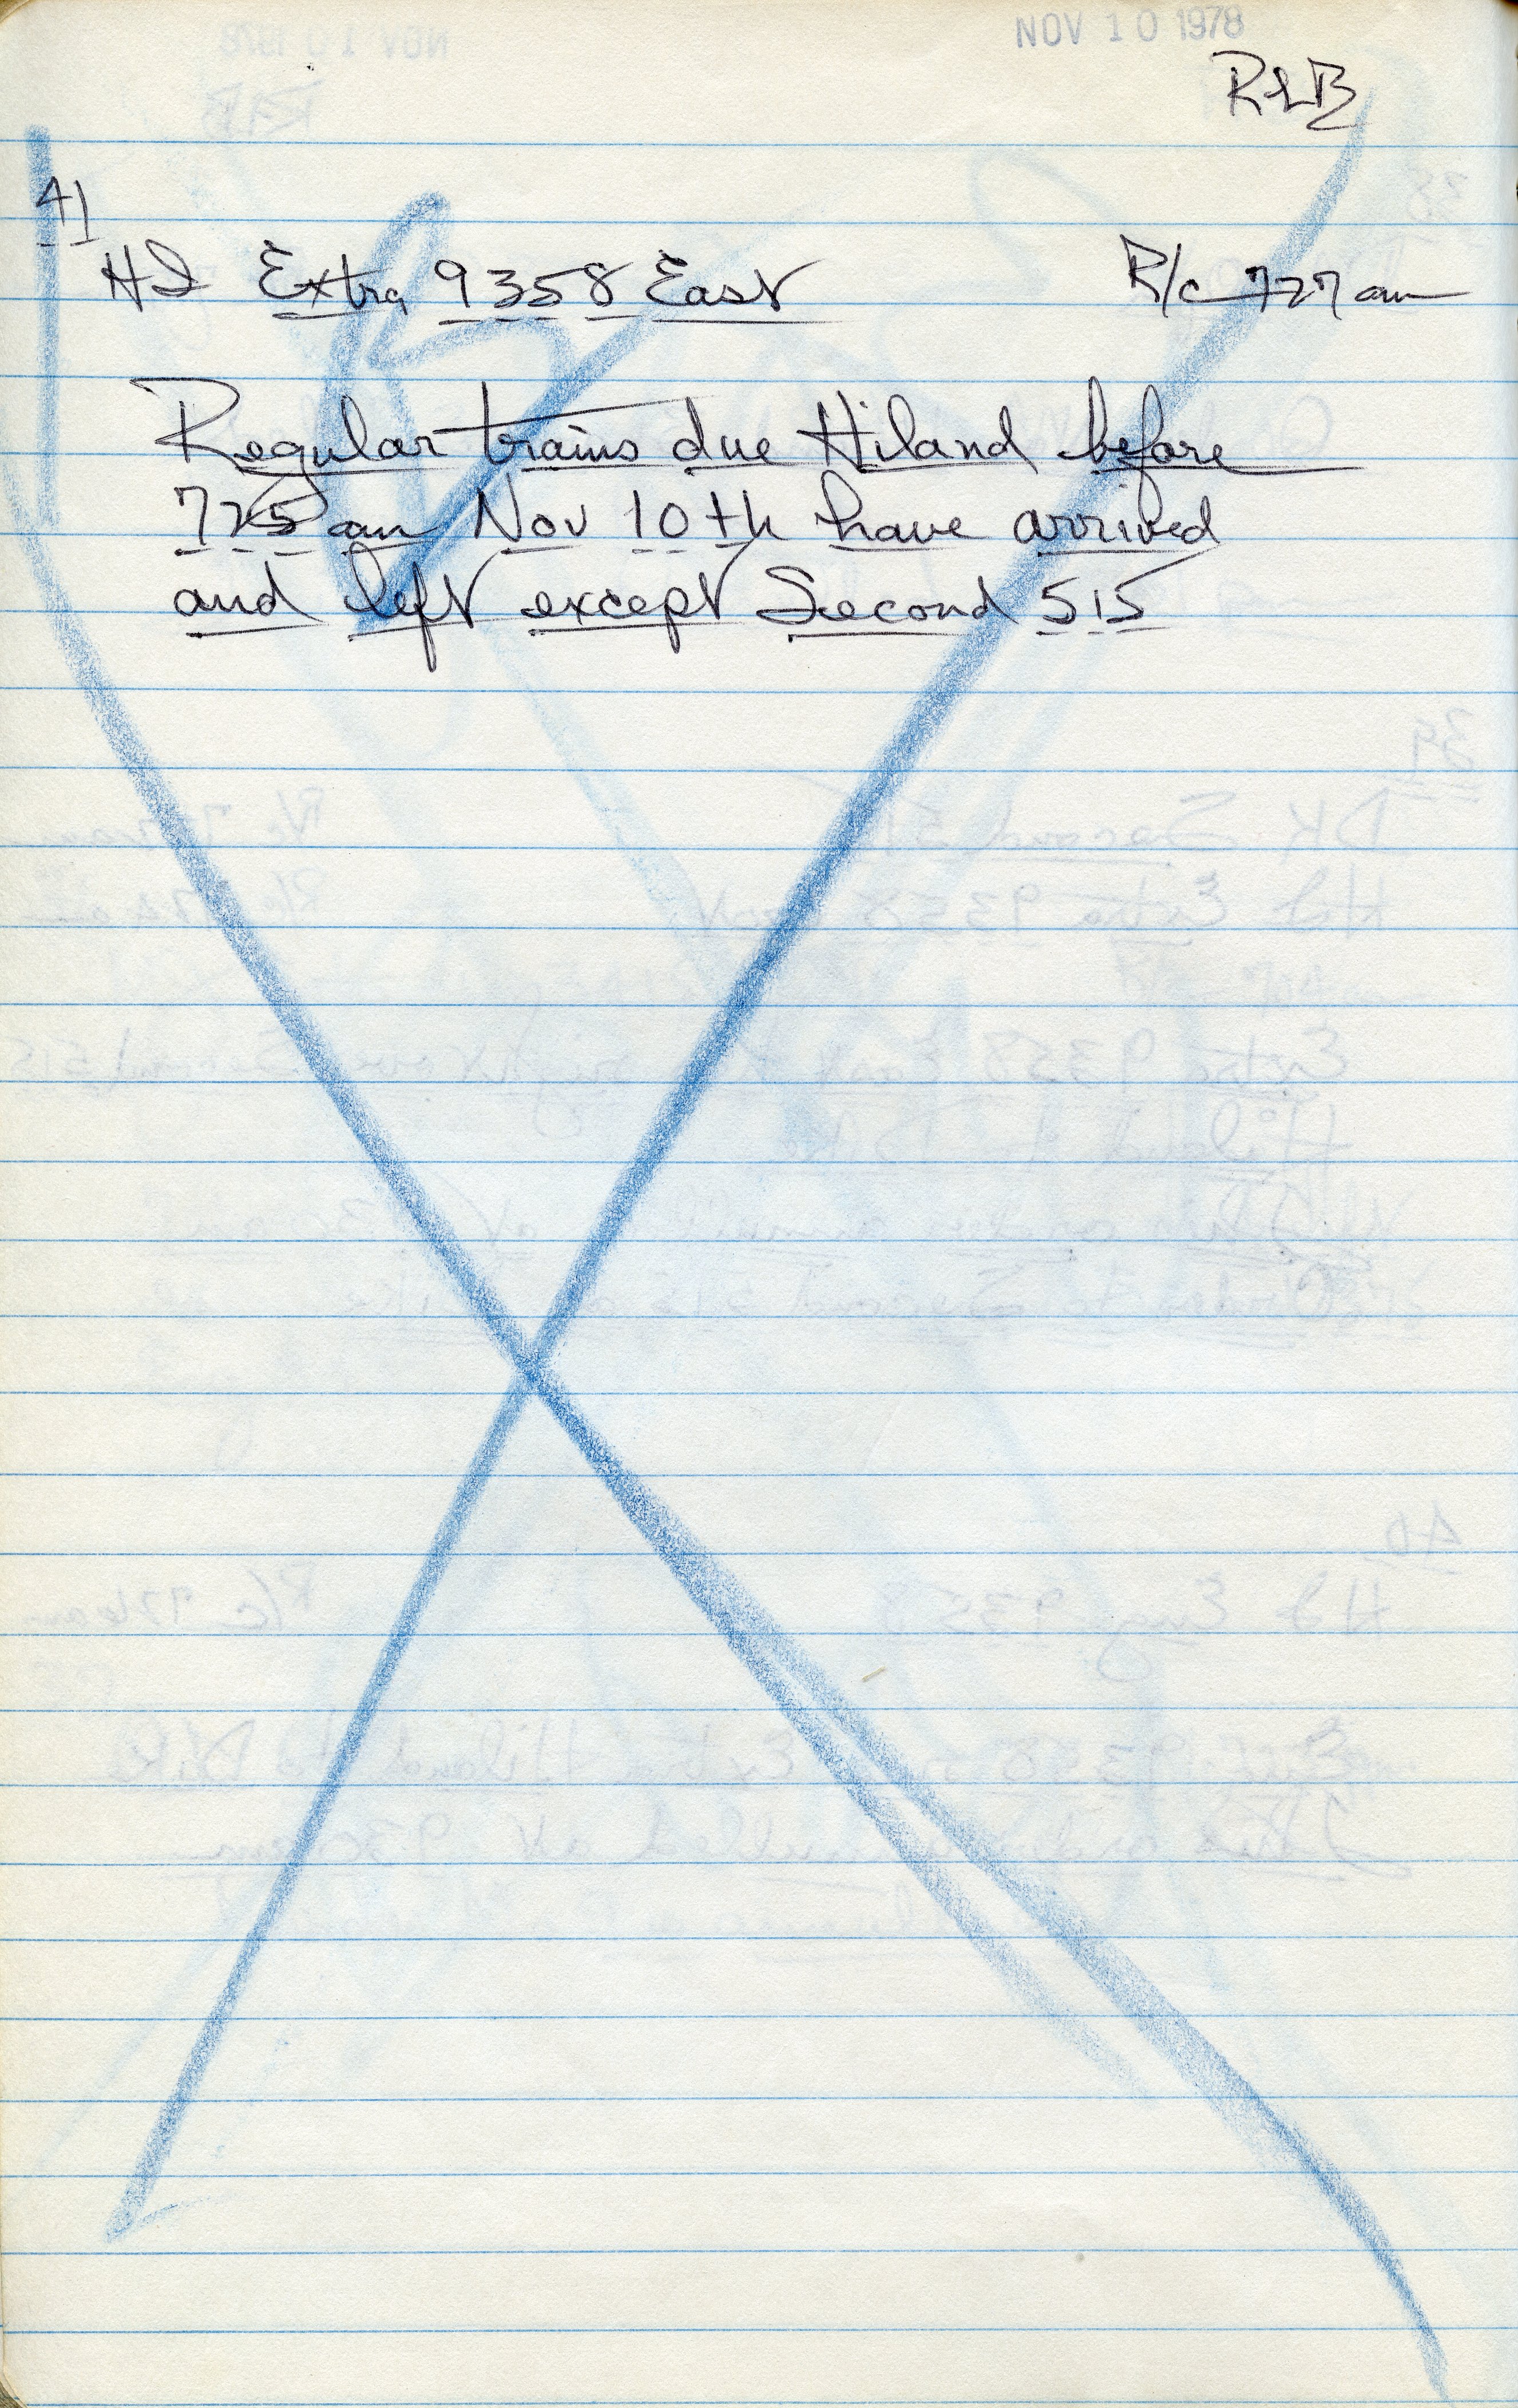 NOV 10 1978
RLB
41
HI Extra 9358 East R/c 727 am
Regular trains due Hiland before
725 am Nov 10th have arrived
and left except Second 515